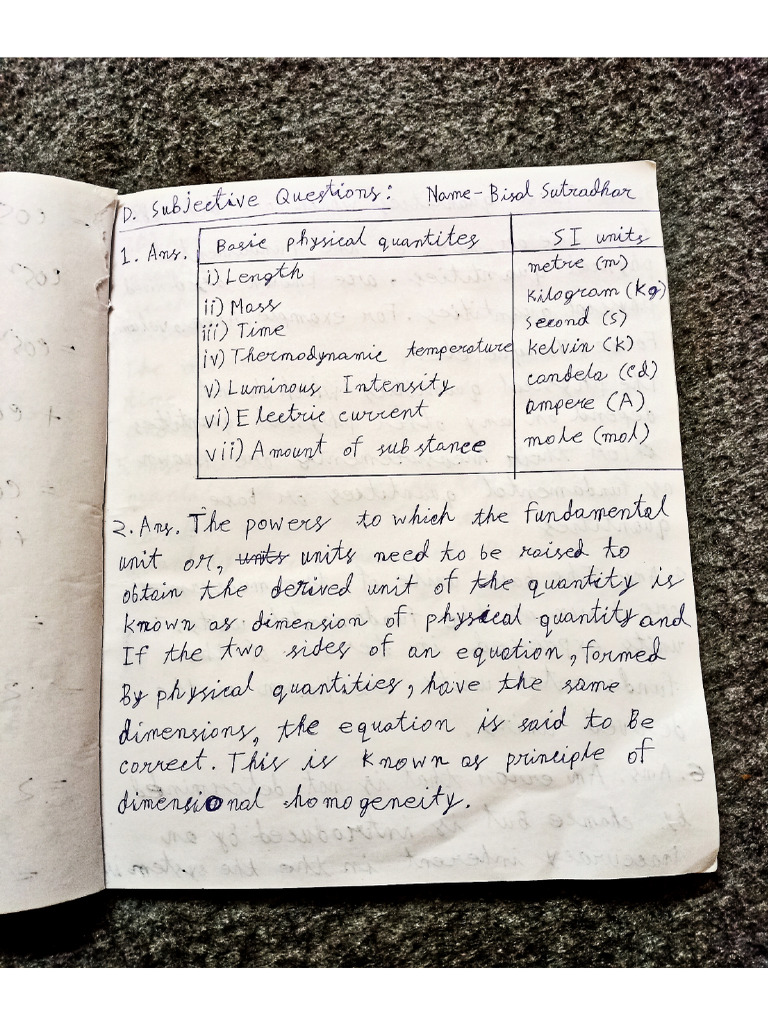 D. Subjective Questions: Name - Bisal Sutradhar
1. Ans. Basic physical quantites SI units
i) Length metre (m)
ii) Mass Kilogram (Kg)
iii) Time second (s)
iv) Thermodynamic temperature kelvin (K)
v) Luminous Intensity candela (cd)
vi) Electric current ampere (A)
vii) Amount of substance mole (mol)
2. Ans. The powers to which the fundamental
unit or, units units need to be raised to
obtain the derived unit of the quantity is
known as dimension of physical quantity and
If the two sides of an equation, formed
By physical quantities, have the same
dimensions, the equation is said to Be
correct. This is known as principle of
dimensional homogeneity.